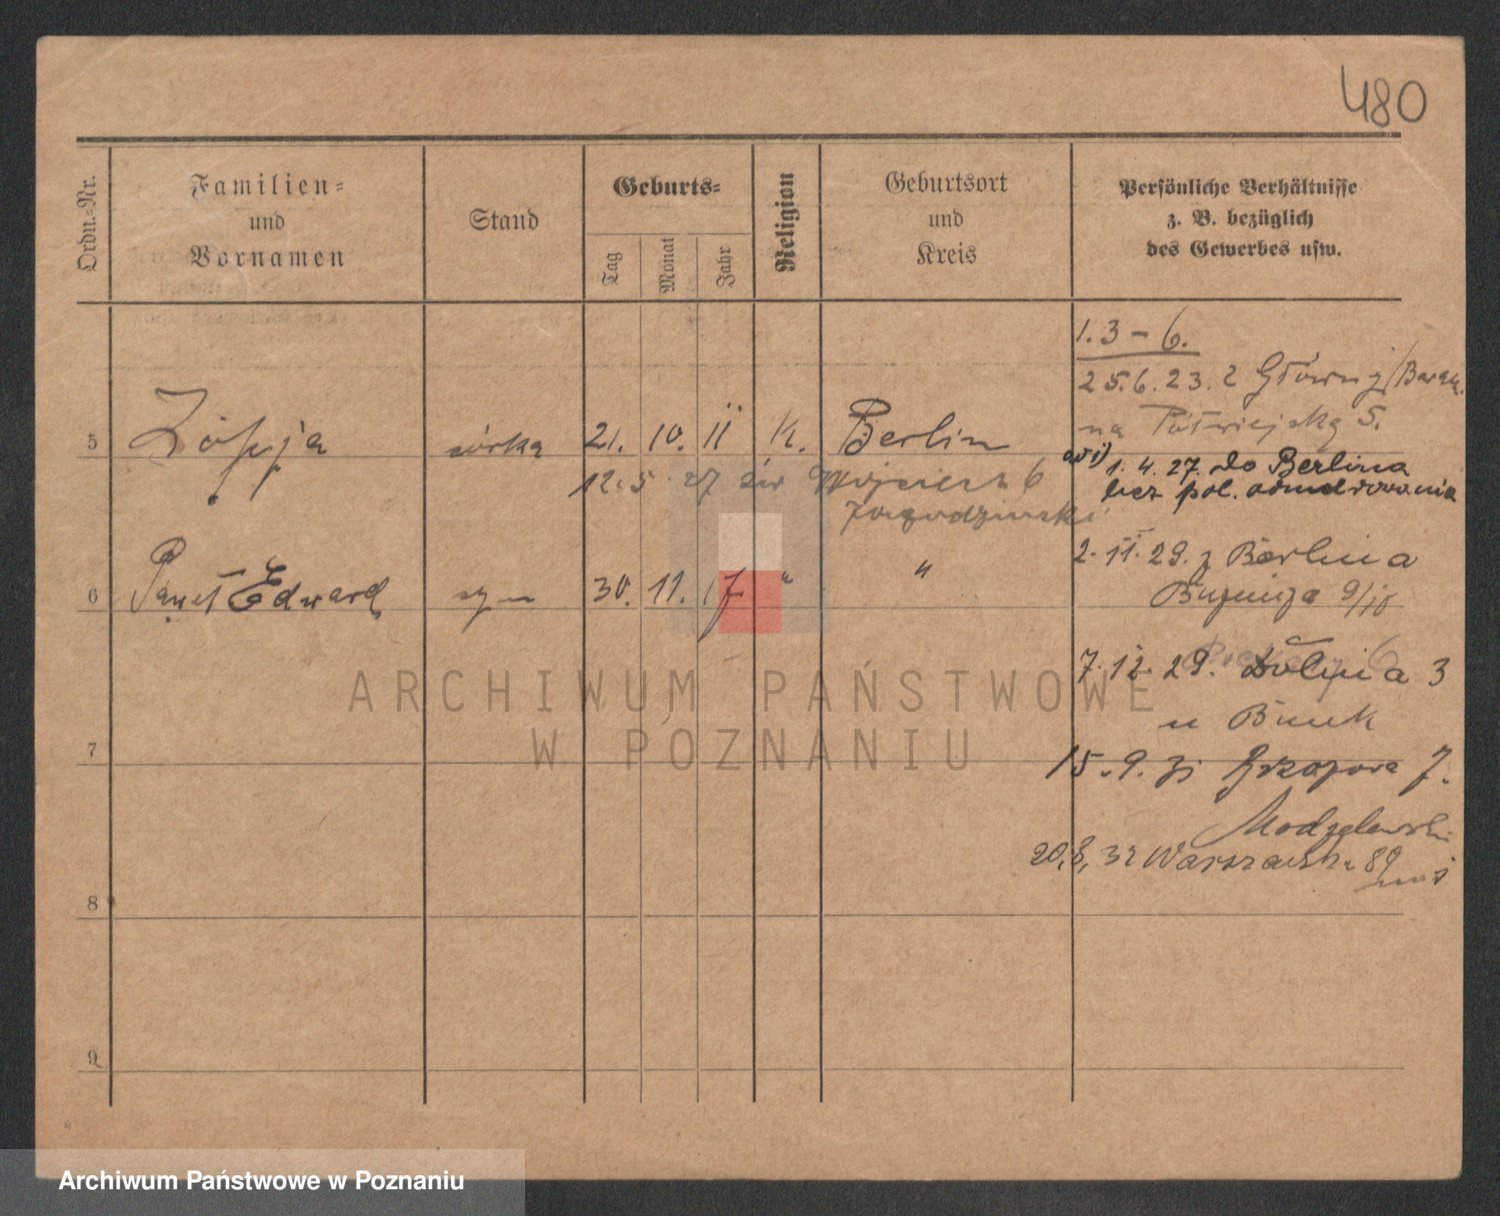 480
Ordn.-Nr.
Familien-
und
Vornamen
Stand
Geburts-
Tag
Monat
Jahr
Religion
Geburtsort
und
Kreis
Persönliche Verhältnisse
z. B. bezüglich
des Gewerbes usw.
1. 3 - 6.
25. 6. 23. z Główny / Barak.
na Półwiejską 5.
5 Zofja córka 21. 10. 11 K. Berlin
1. 4. 27. do Berlina
bez pol. odmeldowania
12. 5. 27 św Wojciech 6
2. 11. 29. z Berlina
6 Paweł Edward syn 30. 11. 17 " "
9/10
7. 12. 29. Dolina 3
u Bunk
7
15. 9. 31 7.
Modzelewski
20, 8, 32 Warszawska 89
8
9
ARCHIWUM PAŃSTWOWE
W POZNANIU
Archiwum Państwowe w Poznaniu